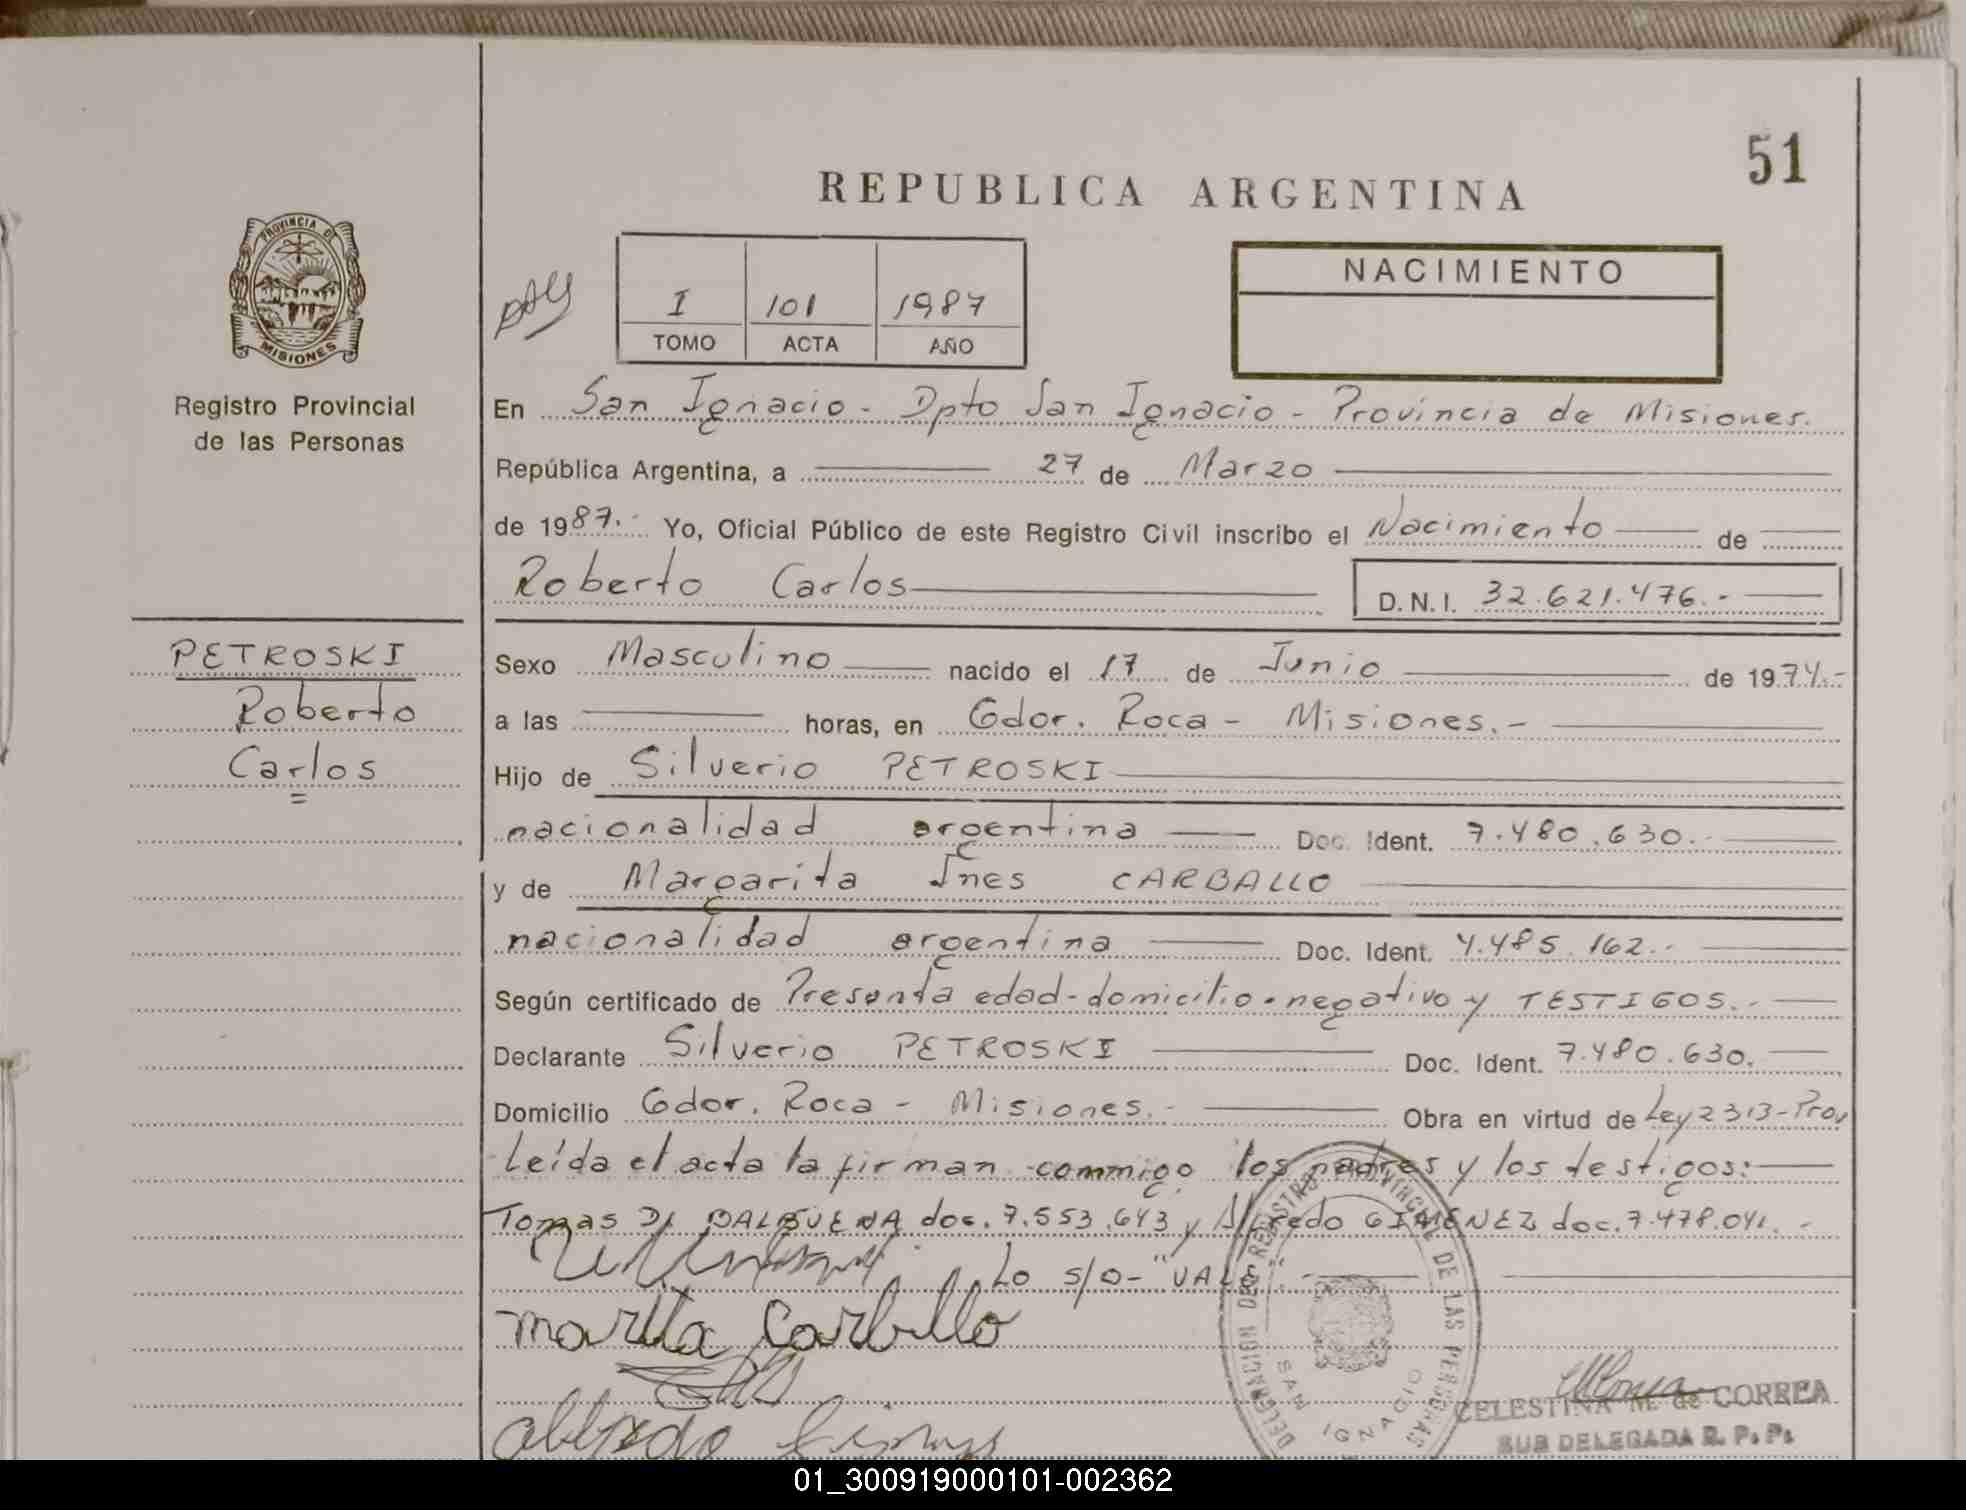 51
REPUBLICA ARGENTINA
PROVINCIA DE
MISIONES
Registro Provincial
de las Personas
I 101 1987
TOMO ACTA AÑO
NACIMIENTO
En San Ignacio - Dpto San Ignacio - Provincia de Misiones.
República Argentina, a 27 de Marzo
de 1987.- Yo, Oficial Público de este Registro Civil inscribo el Nacimiento de
Roberto Carlos D.N.I. 32.621.476.-
PETROSKI
Roberto
Carlos
=
Sexo Masculino nacido el 17 de Junio de 1974.-
a las horas, en Gdor. Roca - Misiones.-
Hijo de Silverio PETROSKI
nacionalidad argentina Doc. Ident. 7.480.630.-
y de Margarita Ines CARBALLO
nacionalidad argentina Doc. Ident. 4.485.162.-
Según certificado de Presunta edad-domicilio-negativo y TESTIGOS.-
Declarante Silverio PETROSKI Doc. Ident. 7.480.630.
Domicilio Gdor. Roca - Misiones.- Obra en virtud de Ley 2313-Prov
Leída el acta la firman conmigo los padres y los testigos:
Tomas D. BALBUENA doc. 7.553.643 y Alfredo GIMENEZ doc. 7.478.041.-
Lo s/o- "VALE"
marita Carballo
DELEGACION DEL REGISTRO PROVINCIAL DE LAS PERSONAS
SAN IGNACIO
CELESTINA M. de CORREA
SUB DELEGADA R. P. P.
01_300919000101-002362